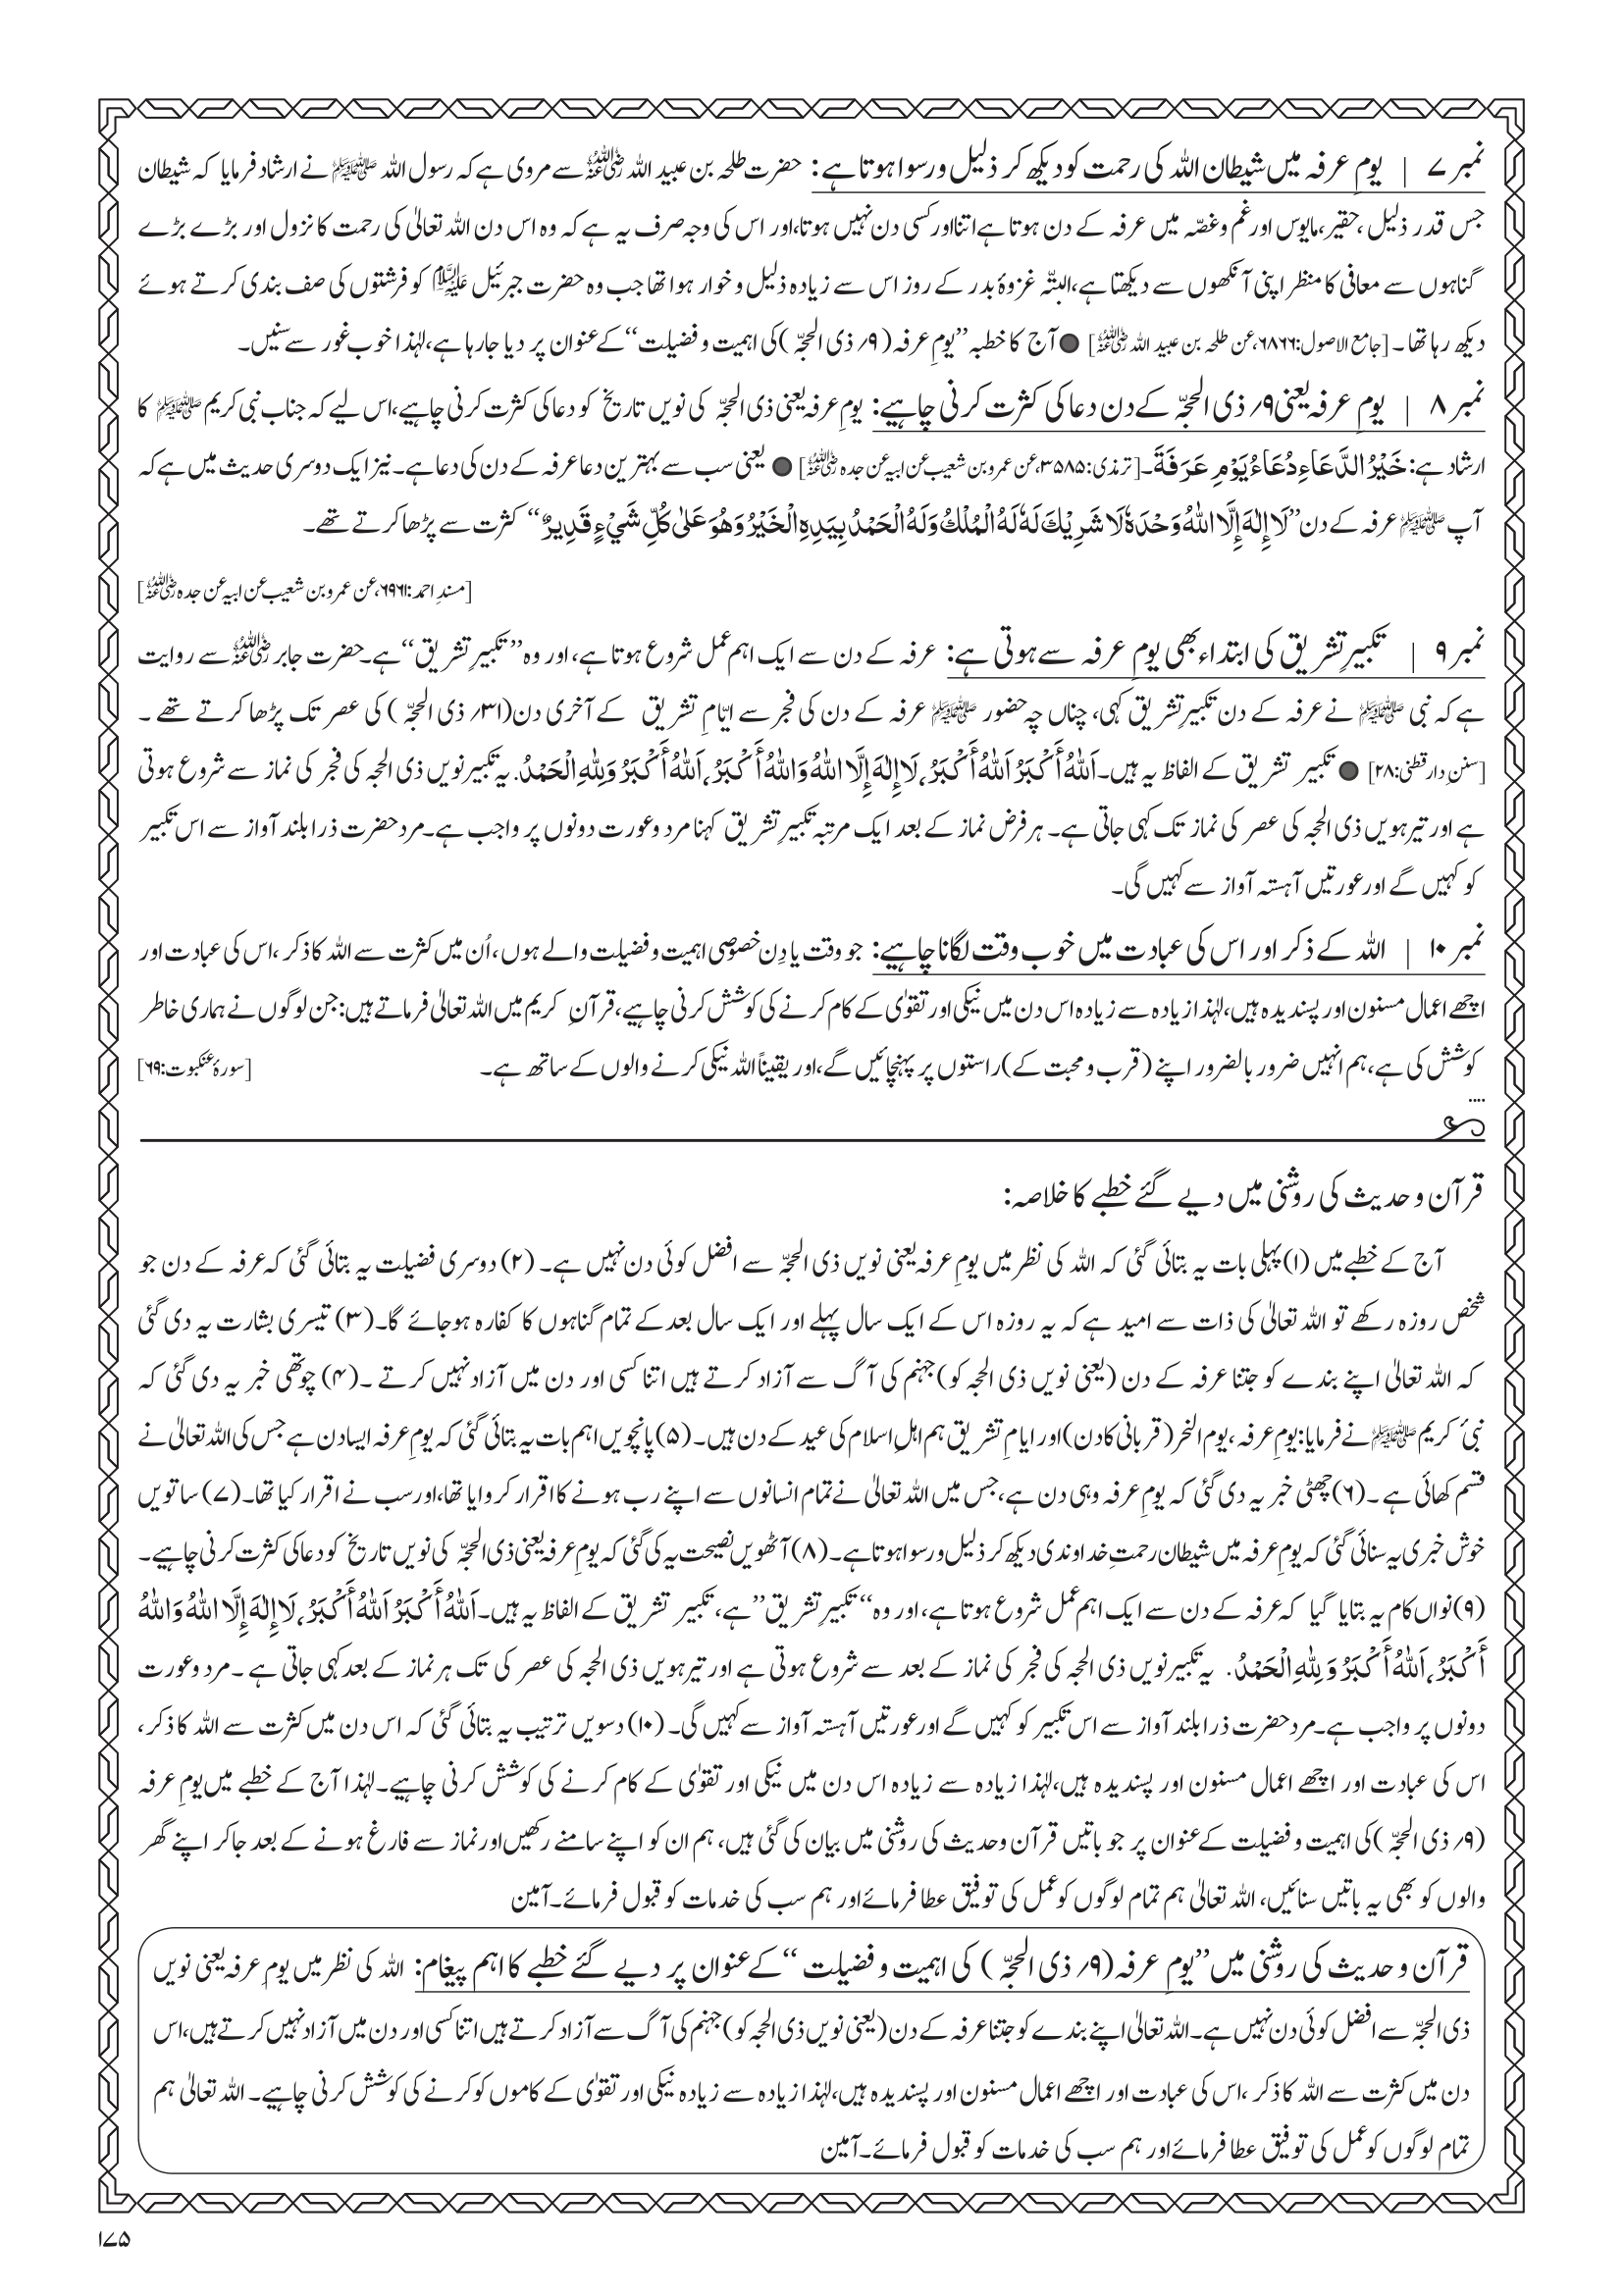 نمبر ۷ | یومِ عرفہ میں شیطان اللہ کی رحمت کو دیکھ کر ذلیل و رسوا ہوتا ہے: حضرت طلحہ بن عبید اللہ رضی اللہ عنہ سے مروی ہے کہ رسول اللہ ﷺ نے ارشاد فرمایا کہ شیطان
جس قدر ذلیل، حقیر، مایوس اور غم و غصّہ میں عرفہ کے دن ہوتا ہے اتنا اور کسی دن نہیں ہوتا، اور اس کی وجہ صرف یہ ہے کہ وہ اس دن اللہ تعالیٰ کی رحمت کا نزول اور بڑے بڑے
گناہوں سے معافی کا منظر اپنی آنکھوں سے دیکھتا ہے، البتّہ غزوۂ بدر کے روز اس سے زیادہ ذلیل و خوار ہوا تھا جب وہ حضرت جبرئیل علیہ السلام کو فرشتوں کی صف بندی کرتے ہوئے
دیکھ رہا تھا۔ [جامع الاصول: ۶۸۶۶، عن طلحہ بن عبید اللہ رضی اللہ عنہ] ● آج کا خطبہ ’’یومِ عرفہ (۹؍ ذی الحجّہ) کی اہمیت و فضیلت‘‘ کے عنوان پر دیا جا رہا ہے، لہٰذا خوب غور سے سنیں۔
نمبر ۸ | یومِ عرفہ یعنی ۹؍ ذی الحجّہ کے دن دعا کی کثرت کرنی چاہیے: یومِ عرفہ یعنی ذی الحجّہ کی نویں تاریخ کو دعا کی کثرت کرنی چاہیے، اس لیے کہ جناب نبی کریم ﷺ کا
ارشاد ہے: خَيْرُ الدَّعَاءِ دُعَاءُ يَوْمِ عَرَفَةَ۔ [ترمذی: ۳۵۸۵، عن عمرو بن شعیب عن ابیہ عن جدہ رضی اللہ عنہ] ● یعنی سب سے بہترین دعا عرفہ کے دن کی دعا ہے۔ نیز ایک دوسری حدیث میں ہے کہ
آپ ﷺ عرفہ کے دن ’’لَا إِلٰهَ إِلَّا اللهُ وَحْدَهٗ لَا شَرِيْكَ لَهٗ لَهُ الْمُلْكُ وَلَهُ الْحَمْدُ بِيَدِهِ الْخَيْرُ وَهُوَ عَلٰى كُلِّ شَيْءٍ قَدِيرٌ‘‘ کثرت سے پڑھا کرتے تھے۔
[مسندِ احمد: ۶۹۶۱، عن عمرو بن شعیب عن ابیہ عن جدہ رضی اللہ عنہ]
نمبر ۹ | تکبیرِ تشریق کی ابتداء بھی یومِ عرفہ سے ہوتی ہے: عرفہ کے دن سے ایک اہم عمل شروع ہوتا ہے، اور وہ ’’تکبیرِ تشریق‘‘ ہے۔ حضرت جابر رضی اللہ عنہ سے روایت
ہے کہ نبی ﷺ نے عرفہ کے دن تکبیرِ تشریق کہی، چناں چہ حضور ﷺ عرفہ کے دن کی فجر سے ایّامِ تشریق کے آخری دن (۱۳؍ ذی الحجّہ) کی عصر تک پڑھا کرتے تھے۔
[سننِ دار قطنی: ۲۸] ● تکبیر تشریق کے الفاظ یہ ہیں۔ اَللهُ أَكْبَرُ اَللهُ أَكْبَرُ، لَا إِلٰهَ إِلَّا اللهُ وَاللهُ أَكْبَرُ، اَللهُ أَكْبَرُ وَلِلهِ الْحَمْدُ. یہ تکبیر نویں ذی الحجہ کی فجر کی نماز سے شروع ہوتی
ہے اور تیرہویں ذی الحجہ کی عصر کی نماز تک کہی جاتی ہے۔ ہر فرض نماز کے بعد ایک مرتبہ تکبیرِ تشریق کہنا مرد و عورت دونوں پر واجب ہے۔ مرد حضرت ذرا بلند آواز سے اس تکبیر
کو کہیں گے اور عورتیں آہستہ آواز سے کہیں گی۔
نمبر ۱۰ | اللہ کے ذکر اور اس کی عبادت میں خوب وقت لگانا چاہیے: جو وقت یا دِن خصوصی اہمیت و فضیلت والے ہوں، اُن میں کثرت سے اللہ کا ذکر، اس کی عبادت اور
اچھے اعمال مسنون اور پسندیدہ ہیں، لہٰذا زیادہ سے زیادہ اس دن میں نیکی اور تقوٰی کے کام کرنے کی کوشش کرنی چاہیے، قرآنِ کریم میں اللہ تعالیٰ فرماتے ہیں: جن لوگوں نے ہماری خاطر
کوشش کی ہے، ہم انہیں ضرور بالضرور اپنے (قرب و محبت کے) راستوں پر پہنچائیں گے، اور یقیناً اللہ نیکی کرنے والوں کے ساتھ ہے۔ [سورۂ عنکبوت: ۶۹]
....
قرآن و حدیث کی روشنی میں دیے گئے خطبے کا خلاصہ:
آج کے خطبے میں (۱) پہلی بات یہ بتائی گئی کہ اللہ کی نظر میں یومِ عرفہ یعنی نویں ذی الحجّہ سے افضل کوئی دن نہیں ہے۔ (۲) دوسری فضیلت یہ بتائی گئی کہ عرفہ کے دن جو
شخص روزہ رکھے تو اللہ تعالیٰ کی ذات سے امید ہے کہ یہ روزہ اس کے ایک سال پہلے اور ایک سال بعد کے تمام گناہوں کا کفارہ ہو جائے گا۔ (۳) تیسری بشارت یہ دی گئی
کہ اللہ تعالیٰ اپنے بندے کو جتنا عرفہ کے دن (یعنی نویں ذی الحجہ کو) جہنم کی آگ سے آزاد کرتے ہیں اتنا کسی اور دن میں آزاد نہیں کرتے۔ (۴) چوتھی خبر یہ دی گئی کہ
نبیٔ کریم ﷺ نے فرمایا: یومِ عرفہ، یوم النحر (قربانی کا دن) اور ایامِ تشریق ہم اہلِ اسلام کی عید کے دن ہیں۔ (۵) پانچویں اہم بات یہ بتائی گئی کہ یومِ عرفہ ایسا دن ہے جس کی اللہ تعالیٰ نے
قسم کھائی ہے۔ (۶) چھٹی خبر یہ دی گئی کہ یومِ عرفہ وہی دن ہے، جس میں اللہ تعالیٰ نے تمام انسانوں سے اپنے رب ہونے کا اقرار کروایا تھا، اور سب نے اقرار کیا تھا۔ (۷) ساتویں
خوش خبری یہ سنائی گئی کہ یومِ عرفہ میں شیطان رحمتِ خداوندی دیکھ کر ذلیل و رسوا ہوتا ہے۔ (۸) آٹھویں نصیحت یہ کی گئی کہ یومِ عرفہ یعنی ذی الحجّہ کی نویں تاریخ کو دعا کی کثرت کرنی چاہیے۔
(۹) نواں کام یہ بتایا گیا کہ عرفہ کے دن سے ایک اہم عمل شروع ہوتا ہے، اور وہ ‘‘تکبیرِ تشریق’’ ہے، تکبیر تشریق کے الفاظ یہ ہیں۔ اَللهُ أَكْبَرُ اَللهُ أَكْبَرُ، لَا إِلٰهَ إِلَّا اللهُ وَاللهُ
أَكْبَرُ، اَللهُ أَكْبَرُ وَلِلهِ الْحَمْدُ. یہ تکبیر نویں ذی الحجہ کی فجر کی نماز کے بعد سے شروع ہوتی ہے اور تیرہویں ذی الحجہ کی عصر کی تک ہر نماز کے بعد کہی جاتی ہے۔ مرد و عورت
دونوں پر واجب ہے۔ مرد حضرت ذرا بلند آواز سے اس تکبیر کو کہیں گے اور عورتیں آہستہ آواز سے کہیں گی۔ (۱۰) دسویں ترتیب یہ بتائی گئی کہ اس دن میں کثرت سے اللہ کا ذکر،
اس کی عبادت اور اچھے اعمال مسنون اور پسندیدہ ہیں، لہٰذا زیادہ سے زیادہ اس دن میں نیکی اور تقوٰی کے کام کرنے کی کوشش کرنی چاہیے۔ لہٰذا آج کے خطبے میں یومِ عرفہ
(۹؍ ذی الحجّہ) کی اہمیت و فضیلت کے عنوان پر جو باتیں قرآن و حدیث کی روشنی میں بیان کی گئی ہیں، ہم ان کو اپنے سامنے رکھیں اور نماز سے فارغ ہونے کے بعد جا کر اپنے گھر
والوں کو بھی یہ باتیں سنائیں، اللہ تعالیٰ ہم تمام لوگوں کو عمل کی توفیق عطا فرمائے اور ہم سب کی خدمات کو قبول فرمائے۔ آمین
قرآن و حدیث کی روشنی میں ’’یومِ عرفہ (۹؍ ذی الحجّہ) کی اہمیت و فضیلت‘‘ کے عنوان پر دیے گئے خطبے کا اہم پیغام: اللہ کی نظر میں یومِ عرفہ یعنی نویں
ذی الحجّہ سے افضل کوئی دن نہیں ہے۔ اللہ تعالیٰ اپنے بندے کو جتنا عرفہ کے دن (یعنی نویں ذی الحجہ کو) جہنم کی آگ سے آزاد کرتے ہیں اتنا کسی اور دن میں آزاد نہیں کرتے ہیں، اس
دن میں کثرت سے اللہ کا ذکر، اس کی عبادت اور اچھے اعمال مسنون اور پسندیدہ ہیں، لہٰذا زیادہ سے زیادہ نیکی اور تقوٰی کے کاموں کو کرنے کی کوشش کرنی چاہیے۔ اللہ تعالیٰ ہم
تمام لوگوں کو عمل کی توفیق عطا فرمائے اور ہم سب کی خدمات کو قبول فرمائے۔ آمین
۱۷۵